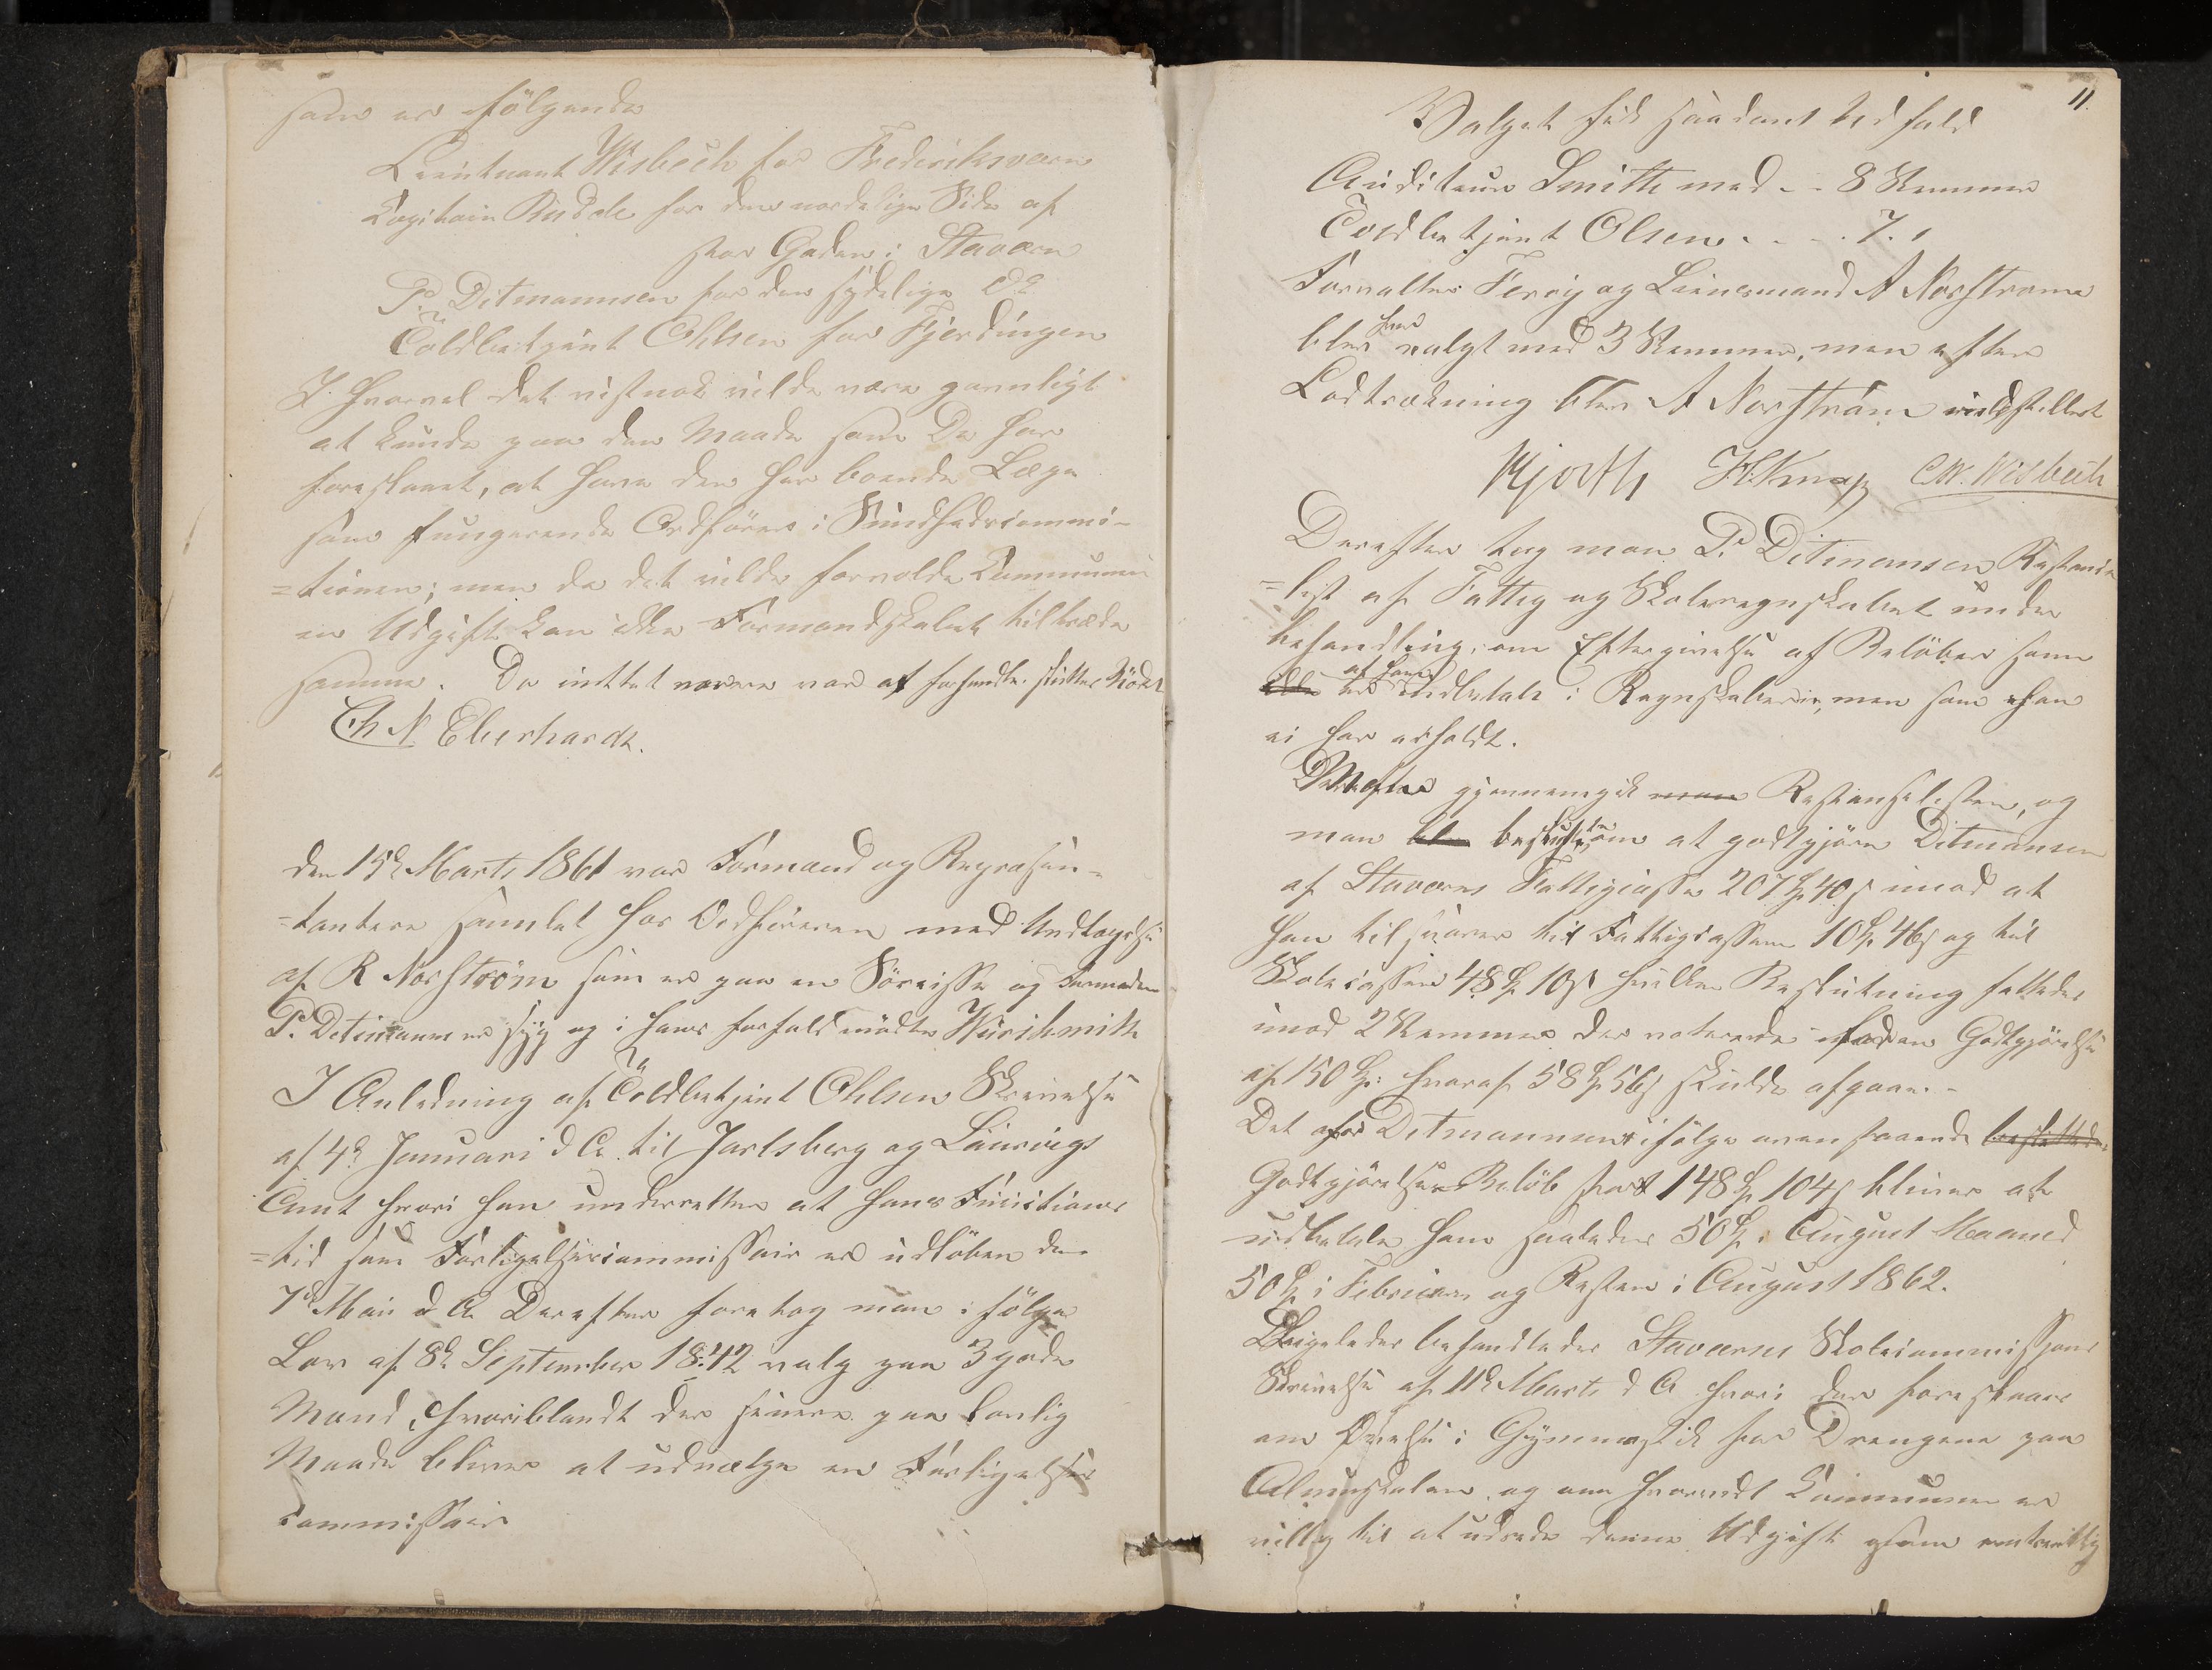 som er følgende
Lieutnant Wisbech for Fredriksværn
Capitain Budde for den nordlige Side af
stor Gaden i Staværn
P. Ditmannsen for den sydlige do
Toldbetjent Ohlsen for Fjerdingen
I. Hvorvel det vistnok vilde være gavnligt
at kunde paa den Maade som De har
foreslaaet, at have den her boende Læge
som fungerende Ordfører i Sundhedscommi-
=tionen; men da det vilde forvolde Communen
en Udgift kan ikke Formandskabet tiltræde
samme. Da inttet mere var at forhandle sluttes Mödet
Ch N Eberhardt.
den 15d Marts 1861 var Formænd og Repræsen-
=tantere samlet hos Ordføreren med Undtagelse
af R Norström som er paa en Søreise og Formanden
P. Ditmann er syg og i hans forfald mödte
I Anledning af Toldbetjent Ohlsen Skrivelse
af 4d Januari d A. til Jarlsberg og Laurvigs
Amt hvori han underretter at hans Functions
=tid som Forligelsescommissair er udløben den
7d Mai d A Derefter foretog man i følge
Lov af 8d September 1842 valg paa 3 gode
Mænd, hvoriblandt der senere paa lovlig
Maade bliver at udvælge en Forligelses
commissair
11.
Valget fik saadant Udfald
Auditeur Smith med - - 8 Stemmer
Toldbetjent Olsen - - - 7. "
Forvalter Ferry og Lænsmand A Norstrøm
blev hver valgt med 3 Stemmer, men efter
Lodtrækning blev A Norström indstillet
Hjorth H. Knap C.W. Wisbech
Derefter tog man P. Ditmansen Restance
=list af Fattig og Skoleregnskabet under
behandling, om Eftergivelse af Beløber som
af ham er indbetalt i Regnskaberne, men som han
ei har erholdt.
Derefter gjennemgik man Restanselisten, og
man blev besluttede om at godtgjøre Ditmansen
af Staværns Fattigcasse 207 Sp 40 s imod at
han tilsvarer til Fattigcassen 10 Sp. 46 s og til
Skolecassen 48 Sp 10 s hvilken Beslutning fattedes
imod 2 Stemmer der voterede for en Godtgjørelse
af 150 Sp: hvoraf 58 Sp 56 s skulde afgaae. -
Det for Ditmannsen ifølge ovenstaaende besluttede
Godtgjørelses Beløb stort 148 Sp 104 s bliver at
udbetale ham saaledes 50 Sp i August Maaned
50 Sp i Februar og Resten i August 1862.
Ligeledes behandledes Staværns Skolecommissions
Skrivelse af 11d Marts d A hvori der foreslaaes
om Øvelse i Gymnastik for Drengene paa
Almuskolen, og om hvorvidt Communen er
villig til at udrede denne Udgift som omtrentlig